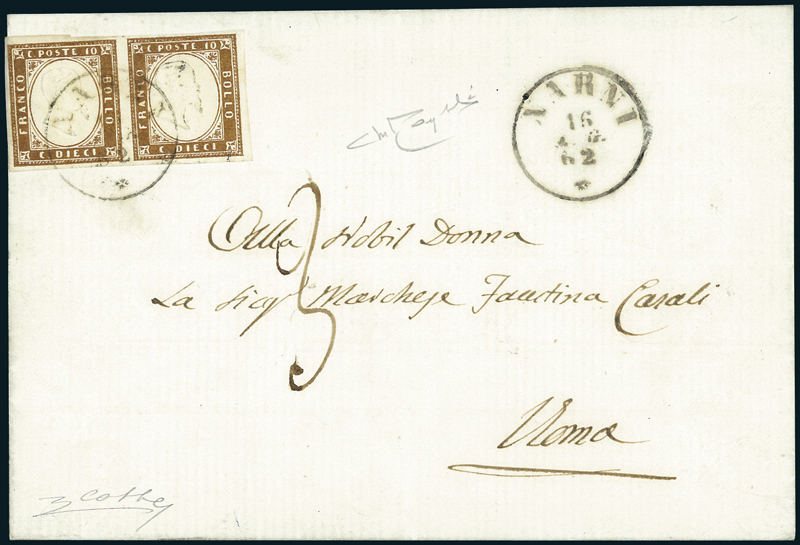 C POSTE 10
FRANCO
BOLLO
C DIECI
C POSTE 10
FRANCO
BOLLO
C DIECI
NARNI
16
62
Alla Nobil Donna
La Sigra Marchese Faustina Casali
3
Roma